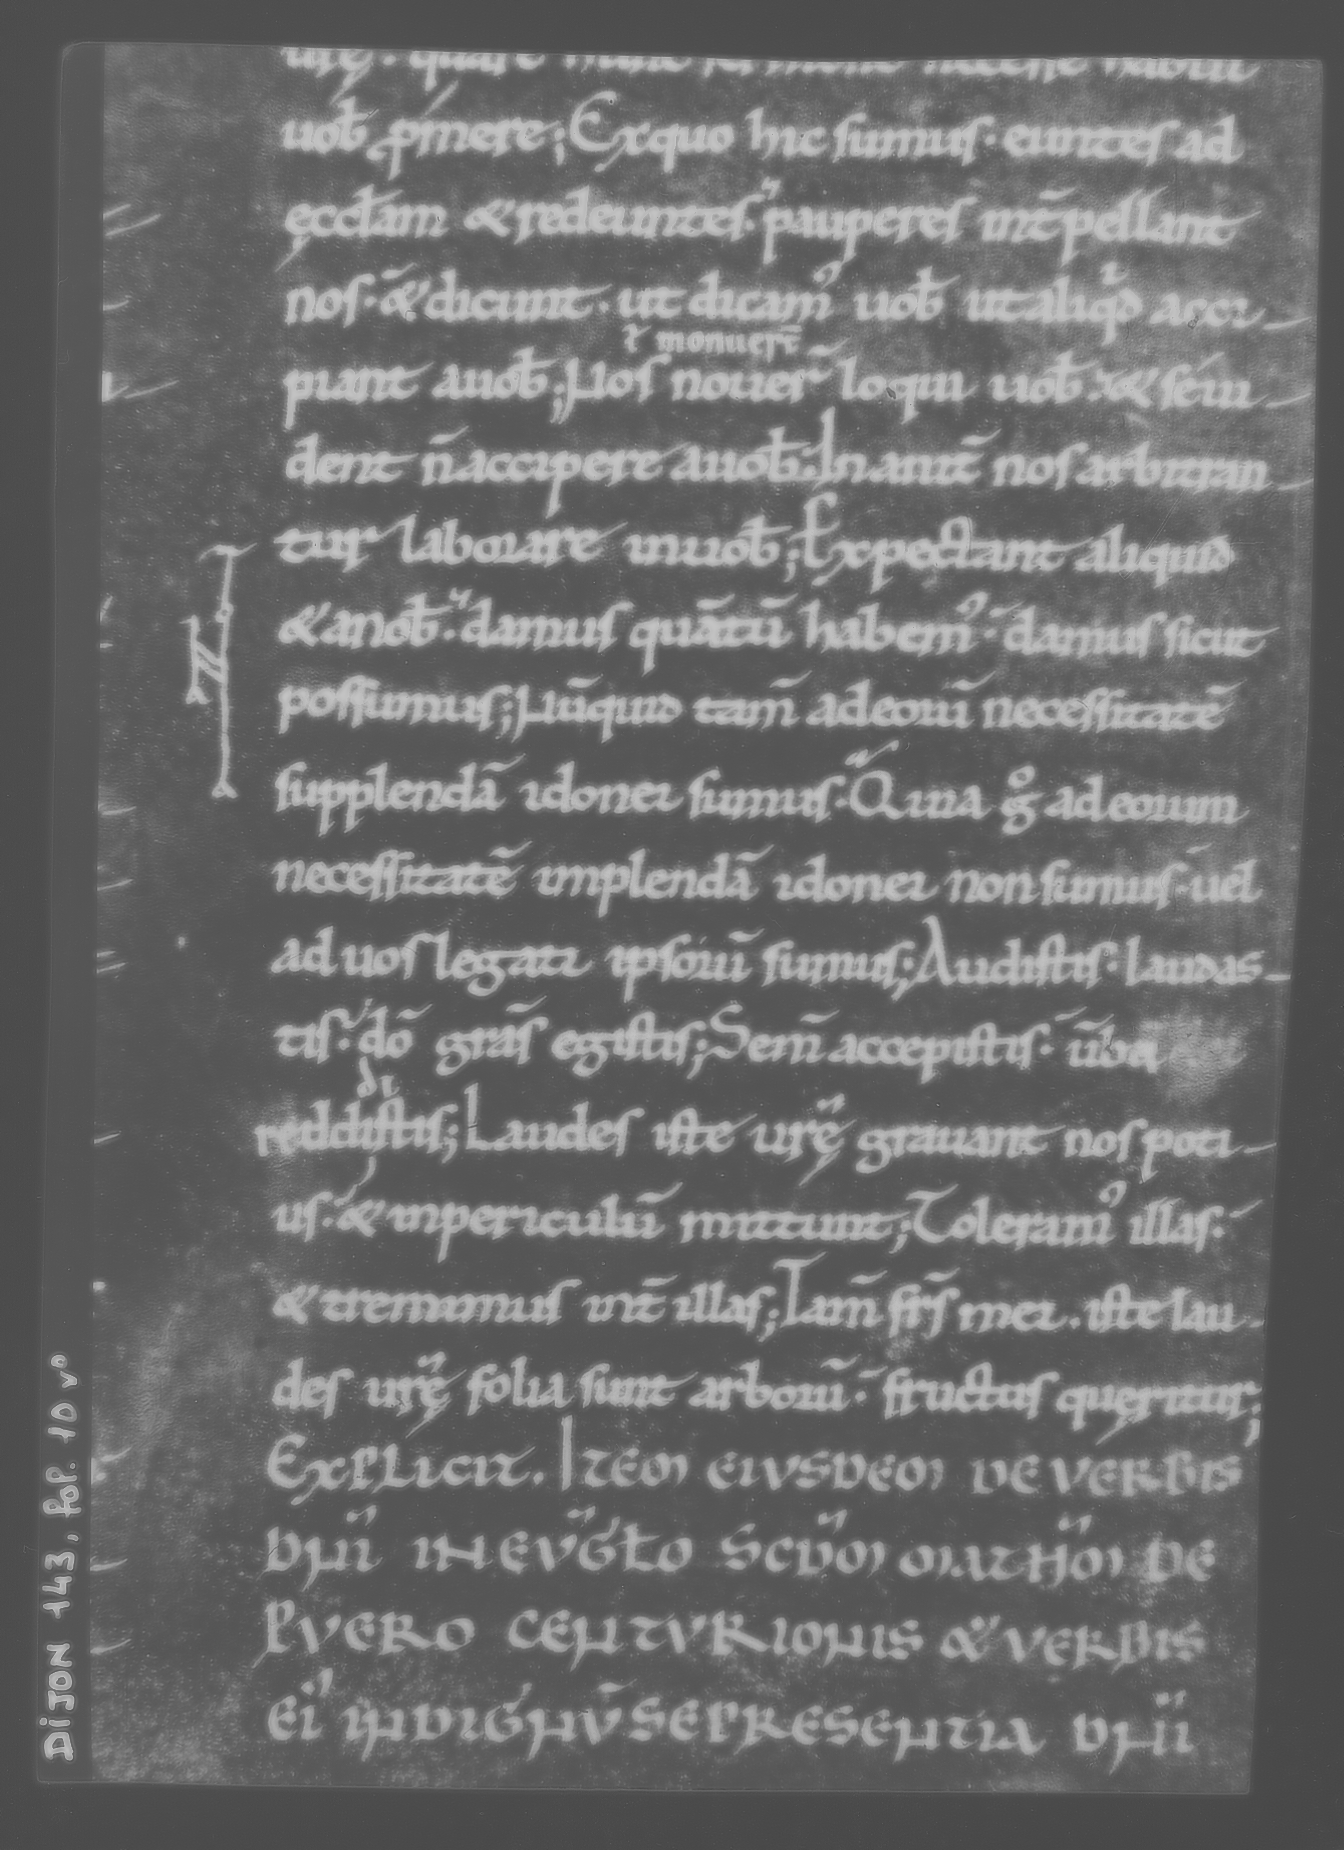 urę. quare nunc sermone necesse habui
uob̄ ꝓmere; Exquo hic sumus. euntes ad
ęccl̄am & redeuntes. pauperes int̄pellant
nos. & dicunt. ut dicam᾿ uob̄ ut aliqͥd acci-
ł monuer̄
piant auob̄; Nos nouer̄ loqui uob̄. & se ui-
dent n̄ accipere auob̄. Inanit̄ nos arbitran-
tur laborare inuob̄; Expectant aliquid
& anob̄. damus quātū habem᾿. damus sicut
possumus; Nūquid tam̄ adeoruū necessitatē
supplendā idonei sumus. Quia gͦ adeorum
necessitatē implendā idonei non sumus. uel
ad uos legati ipsorū sumus; Audistis. laudas-
tis. dō grās egistis; Sem̄ accepistis. ūba
di
reddistis; Laudes iste urę grauant nos poti-
us. & inpericulū mittunt; Toleram᾿ illas.
& tremimus int̄ illas; Tam̄ frs̄ mei. iste lau-
des urę folia sunt arborū. fructus queritur;
EXPLICIT. ITEM EIUSDEM DE VERBIS
DNI IN EVGŁO SCDM MATHM DE
PVERO CENTVRIONIS & VERBIS
EI INDIGNV̄ SE PRESENTIA DNI
DIJON 143, fol. 10 v°